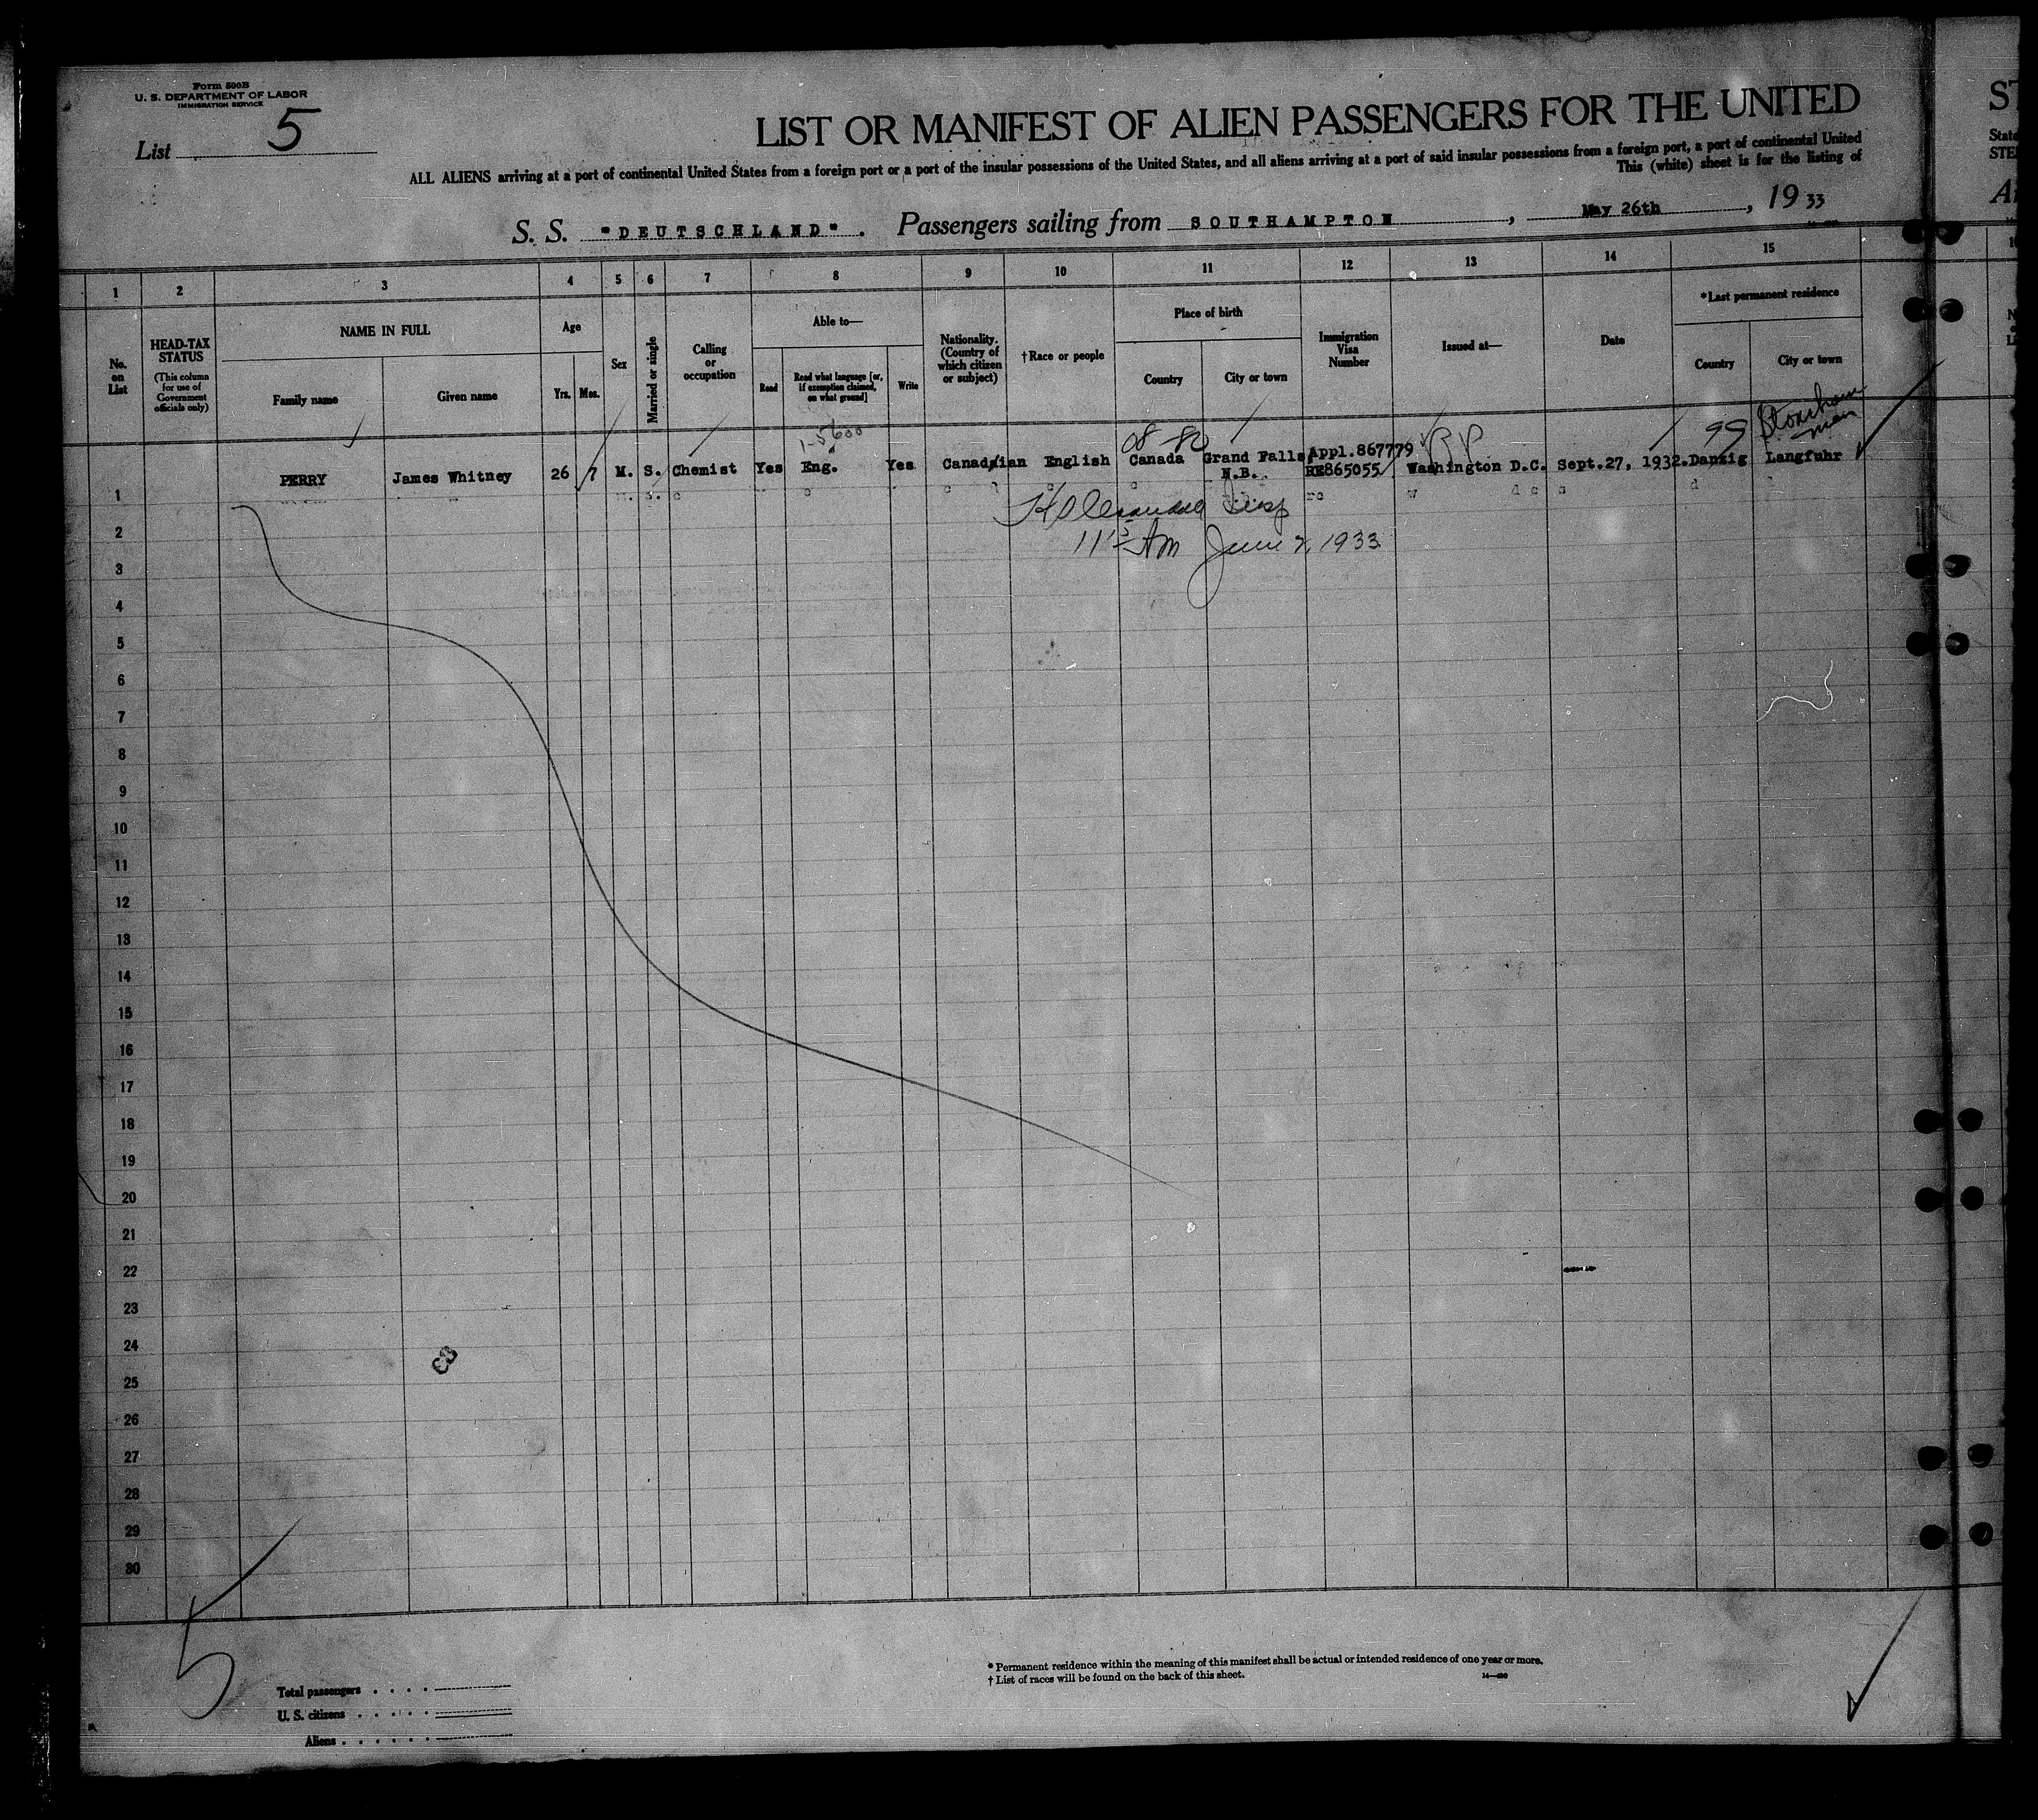 Form 500B
U. S. DEPARTMENT OF LABOR
IMMIGRATION SERVICE
List 5
LIST OR MANIFEST OF ALIEN PASSENGERS FOR THE UNITED
ST
ALL ALIENS arriving at a port of continental United States from a foreign port or a port of the insular possessions of the United States, and all aliens arriving at a port of said insular possessions from a foreign port, a port of continental United
State
This (white) sheet is for the listing of
STE
S. S. "DEUTSCHLAND". Passengers sailing from SOUTHAMPTON, May 26th, 1933
1 2 3 4 5 6 7 8 9 10 11 12 13 14 15
No. on List
HEAD-TAX STATUS
(This column for use of Government officials only)
NAME IN FULL
Family name
Given name
Age
Yrs.
Mos.
Sex
Married or single
Calling or occupation
Able to—
Read
Read what language [or, if exemption claimed, on what ground]
Write
Nationality. (Country of which citizen or subject)
†Race or people
Place of birth
Country
City or town
Immigration Visa Number
Issued at—
Date
*Last permanent residence
Country
City or town
1-5600
08-80
99
Stoneham
PERRY James Whitney 26 7 M. S. Chemist Yes Eng. Yes Canadian English Canada Grand Falls, N.B. Appl.867779 RE865055 Washington D.C. Sept.27, 1932. Danzig Langfuhr
1
2
11 AM June 2, 1933
3
4
5
6
7
8
9
10
11
12
13
14
15
16
17
18
19
20
21
22
23
24
25
26
27
28
29
30
5
Total passengers
U. S. citizens
Aliens
* Permanent residence within the meaning of this manifest shall be actual or intended residence of one year or more.
† List of races will be found on the back of this sheet.